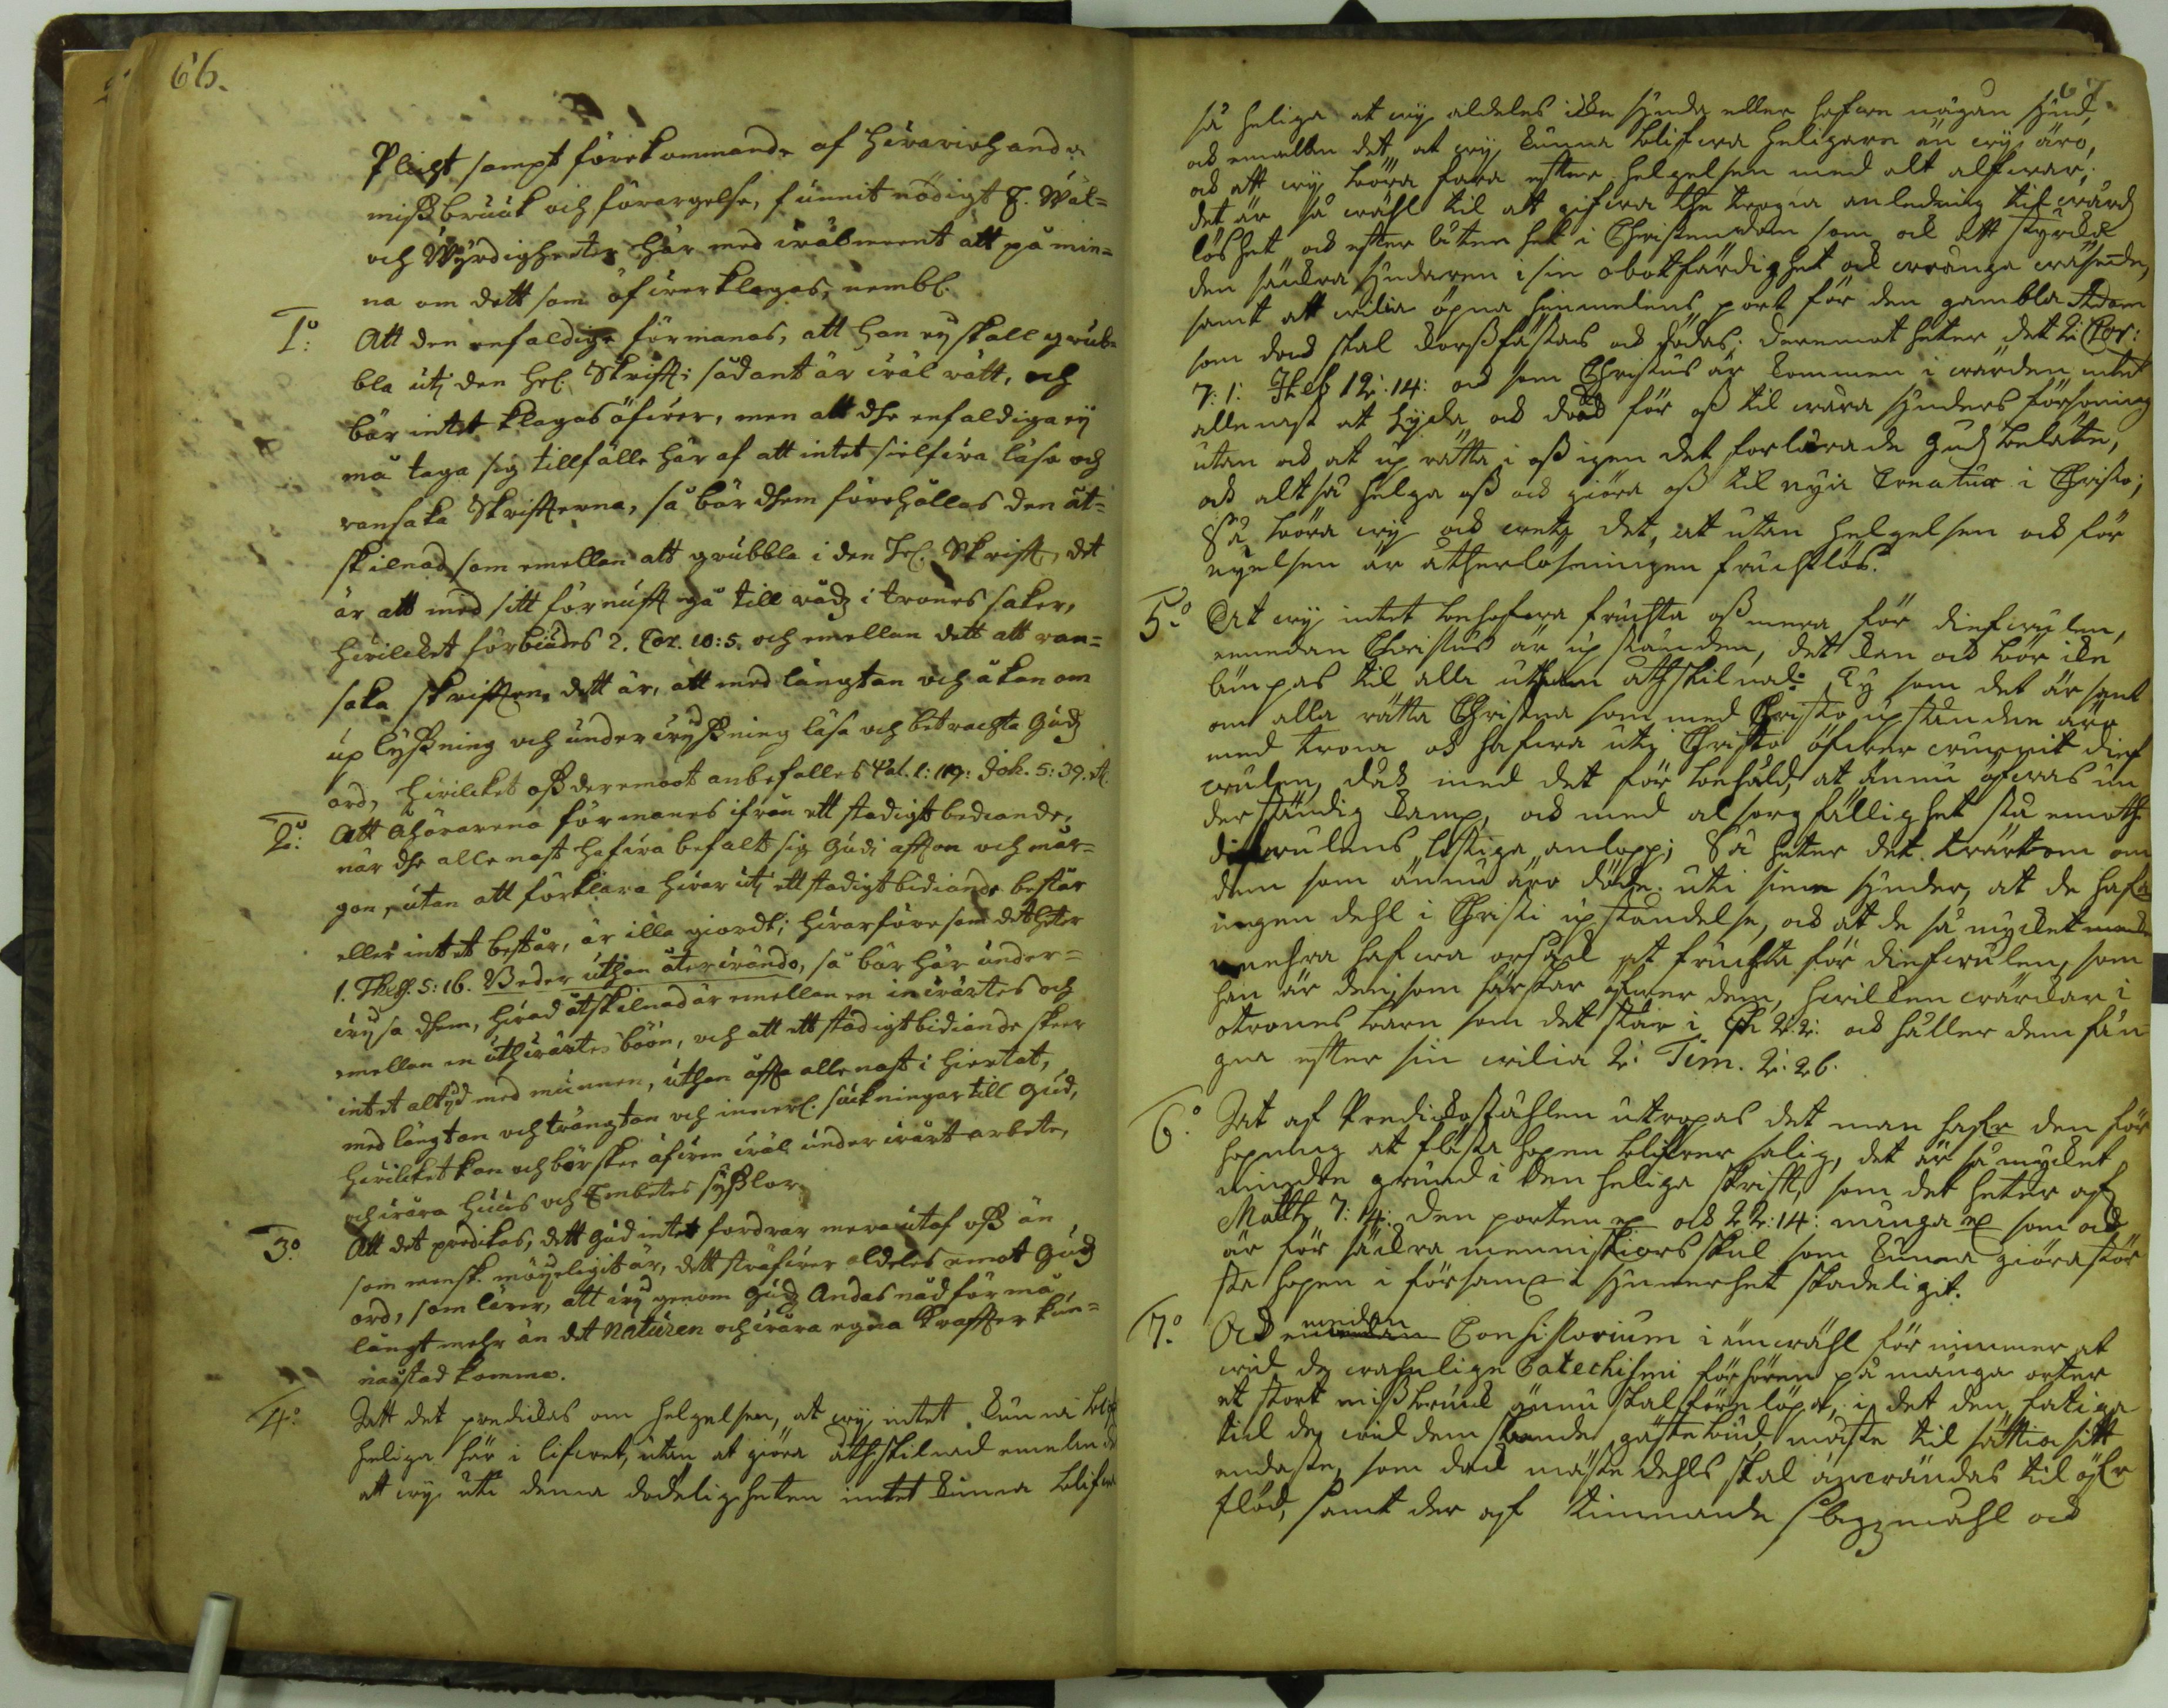 66.
Plicht sampt förekommande af hwariehanda
missbruuk och förargelse, funnit nödigt E. Wäl-
och Wyrdigheeter här med wälmeent att påmin-
na om dett som öfwerklagas, nembl.
1:o Att den enfaldige förmanas, att han ey skall grub-
bla uti den hel. Skrifft; sådant är wäl rätt, och
bör intet klagas öfwer, men att dhe enfaldiga ey
må taga sig tillfälle här af att intet sielfwa läsa och
ransaka Skriffterna, så bör dhem förehållas den åt-
skilnad som emellan att grubbla i den Hel. Skrifft, det
är att med sitt förnufft gå till rådz i trones saker,
hwilcket förbiudes 2. Cor. 10:5. och emellan dett att ran-
saka skrifften, dett är, att med längtan och åkan om
uplyssning och underwyssning läsa och betrachta Gudz
ord, hwilcket oss deremoot anbefalles Psal. 1: 119: Joh. 5:39. etc.
2:o Att åhörarena förmanes ifrån ett stadigt bediande,
när dhe allenast hafwa befalt sig Gudi affton och mår-
gon, utan att förklara hwar uti ett stadigt bidiande består
eller intet består, är illa giordt; hwarföre som dett heter
1. Thess. 5:16. Beder uthan återwändo, så bör här under-
wysa dhem, hwad åtskilnad är emellan en inwärtes och
emellan en uthwärtes böön, och att ett stadigt bidiande skeer
intet altyd med munnen, uthan offta allenast i hiertat,
med längtan och trängtan och innerl. suckningar till Gud,
hwilcket kan och bör skee äfwen wäl under wårt arbete,
och wåra huus och Embetes sysslor.
3:o Att det predikas, dett Gud intet fordrar mera utaf oss än
som mensk. möyeligit är, dett sträfwer aldeles emot Gudz
ord, som lärer, att wy genom Gudz Andas nåd förmå
långt mehr än det Naturen och wåra egna Kraffter kun-
na åstad komma.
4:o Att det predickas om helgelsen, at wy intet kunna blif
heliga här i lifwet, utan at giöra åthskilnad emellan d
att wy uti denna dödeligheten intet kunna blifwa
67.
så heliga at wy aldeles icke synda eller hafwa någon synd,
och emellan det, at wy kunna blifwa heligare än wy äro,
och att wy böra fara efter helgelsen med alt alfwar;
det är så wähl til att gifwa the trogna anledning til wård
löshet, och efterlåtenhet i Christendom som och att styrcka
den säckra syndaren i sin obotfärdighet och wrånga wäsende,
samt att wilia öpna himmelens port för den gambla Adam
som dock skal korssfästas och dödas; deremot heter det 2: Cor:
7:1: Heb 12:14: och som Christus är kommen i wärlden intet
allenast at lyda, och död för oss til wåra synders försoning
utan och at up rätta i oss igen det förlorade Gudz beläte,
och altså helga oss och giöra oss til nyia Creatur i Christo;
Så böra wy och wetta det, at utan helgelsen och för
nyelsen är återlösningen fruchtlös.
5:o At wy intet behöfwa fruchta oss mera för diefwulen,
emedan Christus är upstånden, det kan och bör icke
lämpas til alla uthan åthskilnad: Ty som det är sant
om alla rätta Christna som med Christo upståndne äro
med trona och hafwa uti Christo öfwer wunnit dief
wulen, dock med det för behåld, at ännu öfwas un
der ständig kamp, och med al sorgfällighet stå emoth
diefwulens listiga anlopp; Så heter det twärtom om
dem som ännu äro döde uti sina synder, at de hafwa
ingen dehl i Christi upståndelse, och at de så mycket mer
mehra hafwa orsack at fruchta för diefwulen, som
han är den som härskar öfwer dem, hwilcken wärckar i
otrones barn som det står i Eph 2:2: och håller dem fån
gna efter sin wilia 2: Tim. 2:26.
6:o At af Predickostohlen utropas det man hafwer den för
hopning at flästa hopen blifwer salig, det är så mycket
mindre grund i den heliga Skrifft, som det heter af
Matth 7:14: Den porten etc och 22:14: många etc som och
är för säckra menniskiors skul som kunna giöra stör
sta hopen i församl i synnerhet skadeligit.
7:o Och emedan Consistorium i ämwähl förnimmer at
wid de wahnlige Catechismi förhören på många orter
et stort missbruuk ännu skal förelöpa, i det den fatiga
til de wid dem skeende gästebud måste til sättia sitt
endaste, som dock måste dehls skal anwändas til öfwer
flöd, samt der af kommande slagzmåhl och